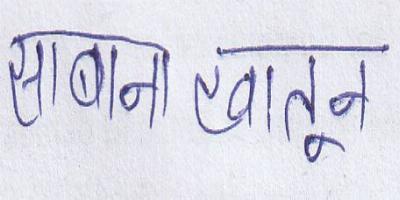 साबाना खातून